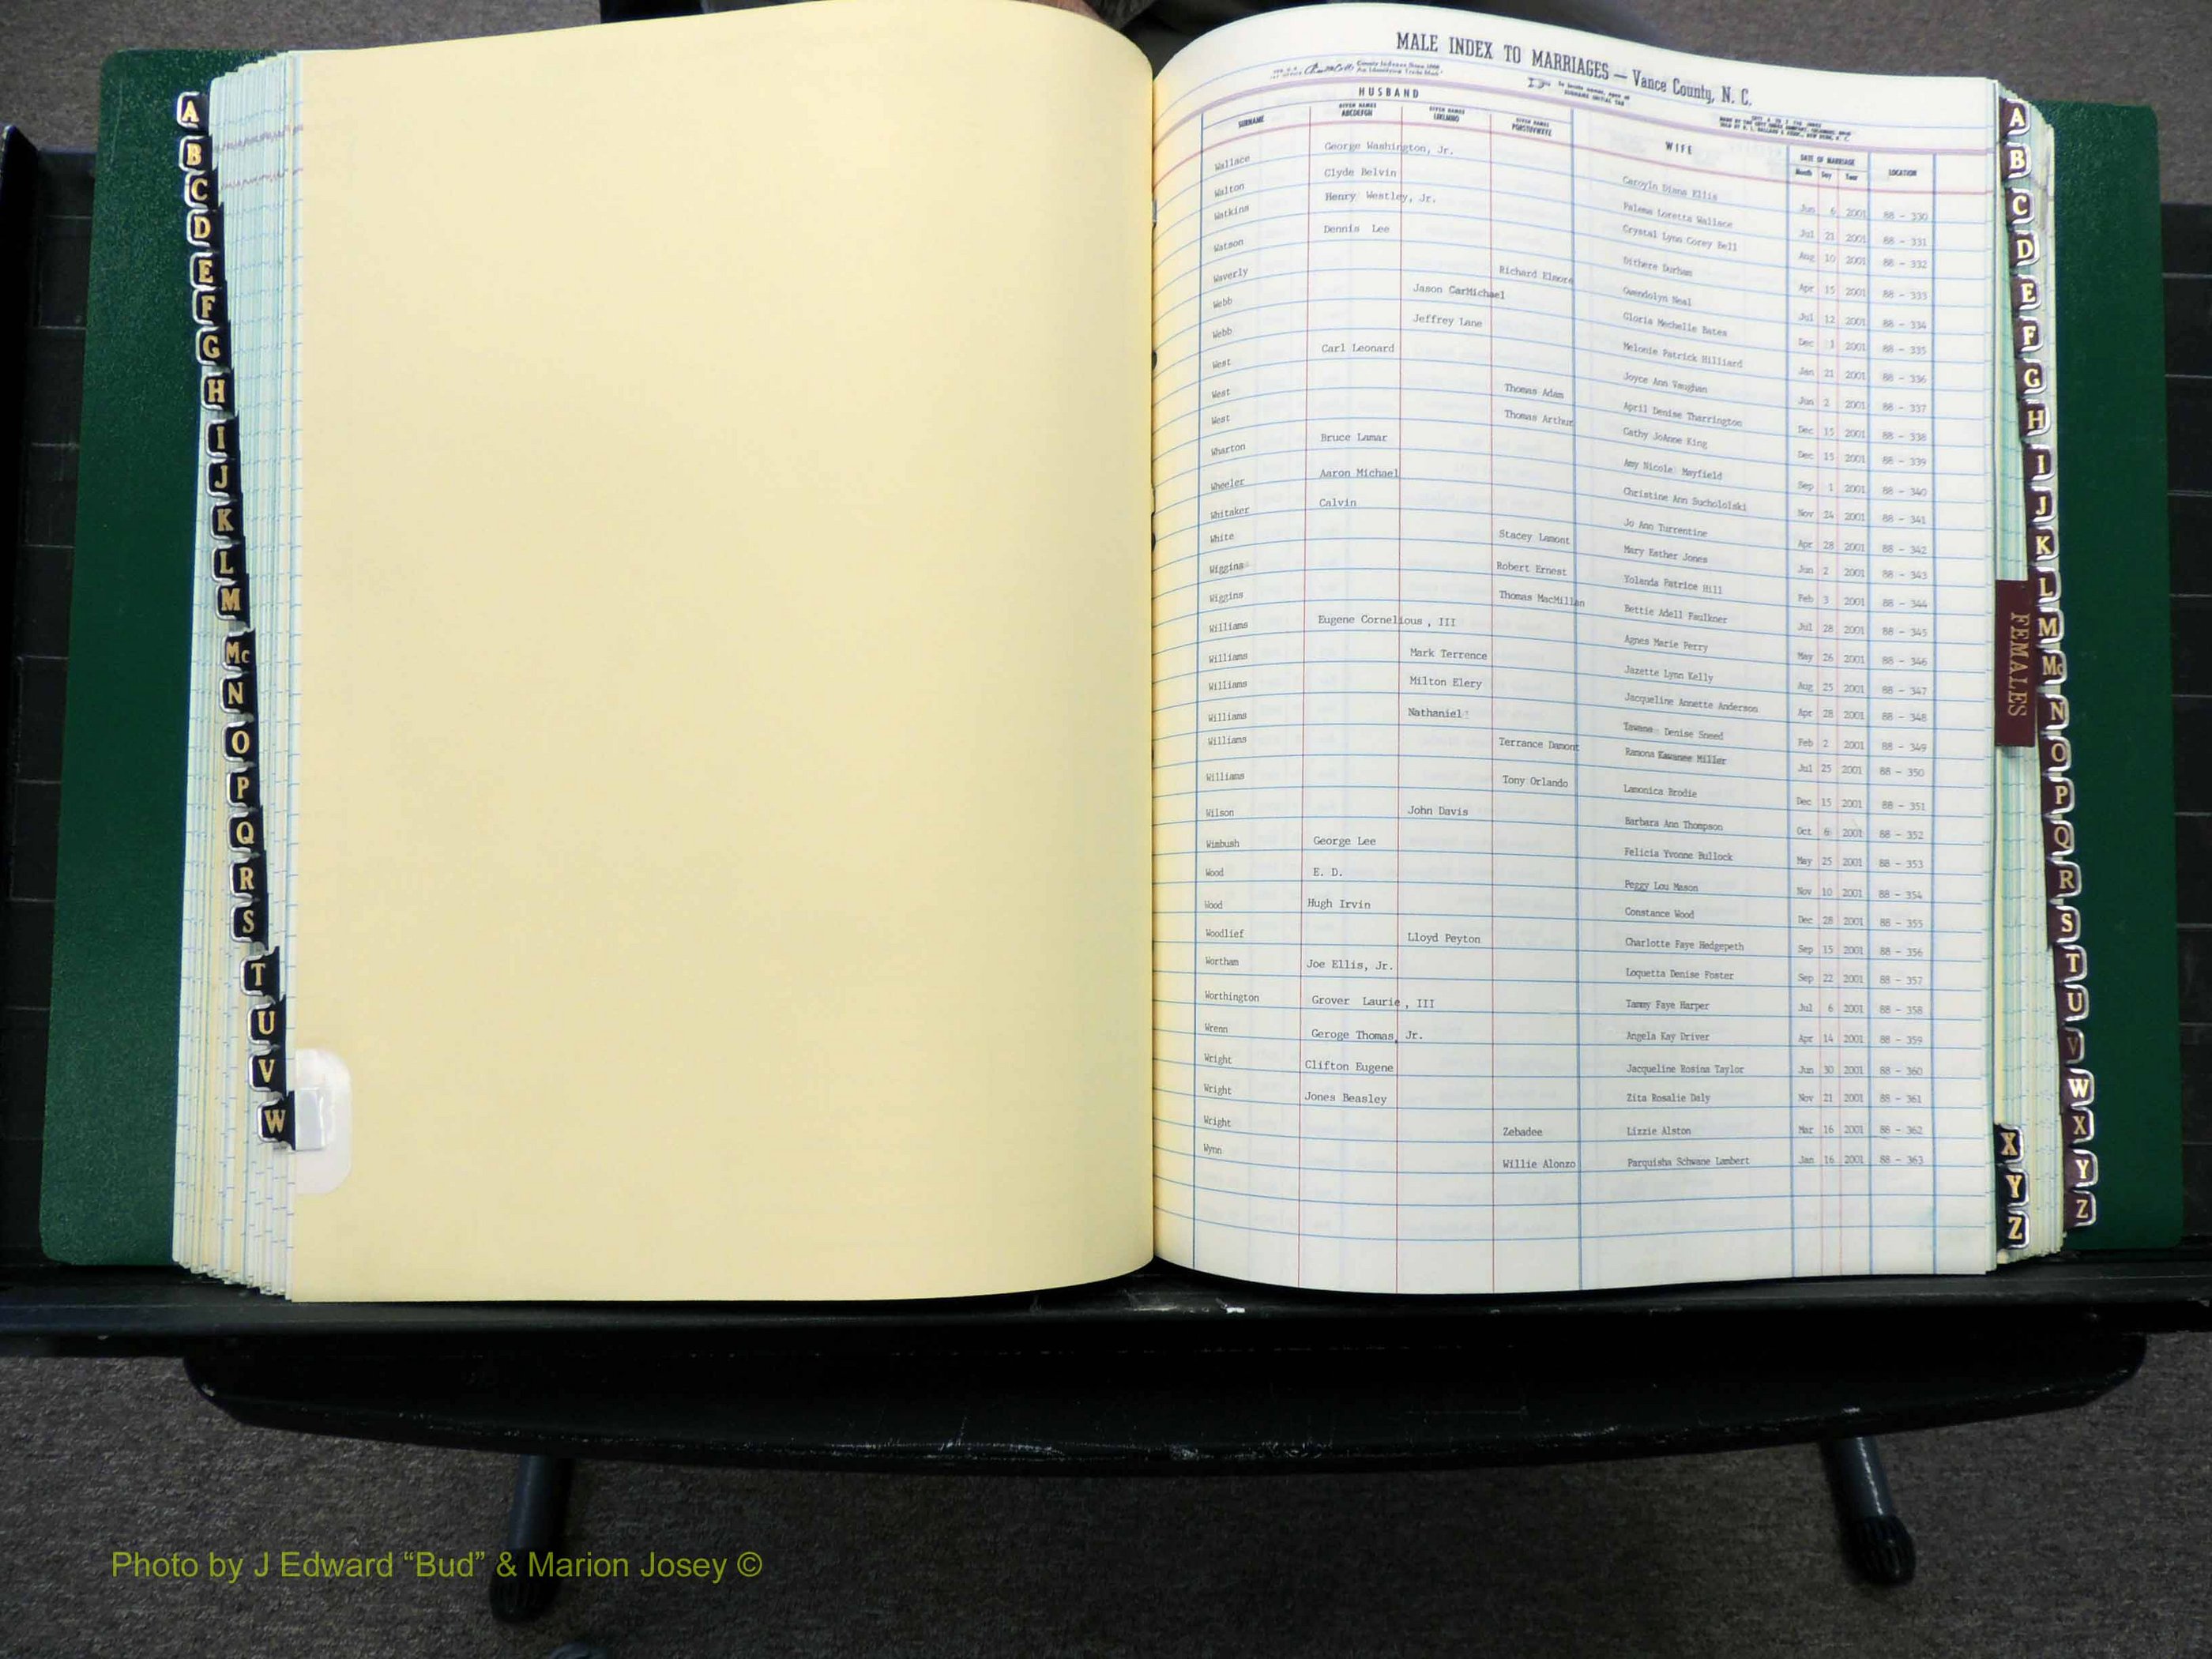 MALE INDEX TO MARRIAGES — Vance County, N. C.
HUSBAND
SURNAME GIVEN NAMES ABCDEFGH GIVEN NAMES IJKLMNO GIVEN NAMES PQRSTUVWXYZ WIFE DATE OF MARRIAGE Month Day Year LOCATION
Wallace George Washington, Jr. Caroyln Diana Ellis Jun 6 2001 88 - 330
Walton Clyde Belvin Palema Loretta Wallace Jul 21 2001 88 - 331
Watkins Henry Westley, Jr. Crystal Lynn Corey Bell Aug 10 2001 88 - 332
Watson Dennis Lee Dithere Durham Apr 15 2001 88 - 333
Waverly Richard Elmore Gwendolyn Neal Jul 12 2001 88 - 334
Webb Jason CarMichael Gloria Mechelle Bates Dec 1 2001 88 - 335
Webb Jeffrey Lane Melonie Patrick Hilliard Jan 21 2001 88 - 336
West Carl Leonard Joyce Ann Vaughan Jun 2 2001 88 - 337
West Thomas Adam April Denise Tharrington Dec 15 2001 88 - 338
West Thomas Arthur Cathy JoAnne King Dec 15 2001 88 - 339
Wharton Bruce Lamar Amy Nicole Mayfield Sep 1 2001 88 - 340
Wheeler Aaron Michael Christine Ann Sucholoiski Nov 24 2001 88 - 341
Whitaker Calvin Jo Ann Turrentine Apr 28 2001 88 - 342
White Stacey Lamont Mary Esther Jones Jun 2 2001 88 - 343
Wiggins Robert Ernest Yolanda Patrice Hill Feb 3 2001 88 - 344
Wiggins Thomas MacMillan Bettie Adell Faulkner Jul 28 2001 88 - 345
Williams Eugene Cornelious , III Agnes Marie Perry May 26 2001 88 - 346
Williams Mark Terrence Jazette Lynn Kelly Aug 25 2001 88 - 347
Williams Milton Elery Jacqueline Annette Anderson Apr 28 2001 88 - 348
Williams Nathaniel Tawana Denise Sneed Feb 2 2001 88 - 349
Williams Terrance Damont Ramona Kawanee Miller Jul 25 2001 88 - 350
Williams Tony Orlando Lamonica Brodie Dec 15 2001 88 - 351
Wilson John Davis Barbara Ann Thompson Oct 6 2001 88 - 352
Wimbush George Lee Felicia Yvonne Bullock May 25 2001 88 - 353
Wood E. D. Peggy Lou Mason Nov 10 2001 88 - 354
Wood Hugh Irvin Constance Wood Dec 28 2001 88 - 355
Woodlief Lloyd Peyton Charlotte Faye Hedgepeth Sep 15 2001 88 - 356
Wortham Joe Ellis, Jr. Loquetta Denise Foster Sep 22 2001 88 - 357
Worthington Grover Laurie , III Tammy Faye Harper Jul 6 2001 88 - 358
Wrenn Geroge Thomas, Jr. Angela Kay Driver Apr 14 2001 88 - 359
Wright Clifton Eugene Jacqueline Rosina Taylor Jun 30 2001 88 - 360
Wright Jones Beasley Zita Rosalie Daly Nov 21 2001 88 - 361
Wright Zebadee Lizzie Alston Mar 16 2001 88 - 362
Wynn Willie Alonzo Parquisha Schwane Lambert Jan 16 2001 88 - 363
A
B
C
D
E
F
G
H
I
J
K
L
M
Mc
N
O
P
Q
R
S
T
U
V
W
X
Y
Z
FEMALES
A
B
C
D
E
F
G
H
I
J
K
L
M
Mc
N
O
P
Q
R
S
T
U
V
W
X
Y
Z
Photo by J Edward “Bud” & Marion Josey ©